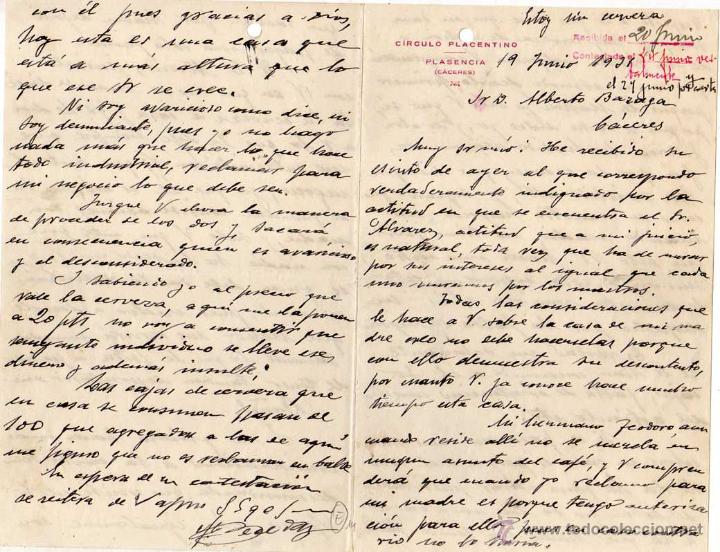 Estoy sin cerveza
CÍRCULO PLACENTINO
PLASENCIA
(CÁCERES)
Recibida el 20 Junio
Contestada el
el 27 Junio
19 Junio 1931
Sr D. Alberto Baraga
Cáceres
Muy Sr mio: He recibido su
escrito de ayer al que correspondo
verdaderamente indignado por la
actitud en que se encuentra el Sr.
Alvarez, actitud que a mi juicio,
es natural, toda vez que ha de mirar
por sus intereses al igual que cada
uno miramos por los nuestros.
Todas las consideraciones que
le hace a V sobre la casa de mi ma
dre creo no debe hacerselas porque
con ello demuestra su descontento,
por cuanto V. ya conoce hace mucho
tiempo esta casa.
Mi hermano Teodoro aun
cuando reside allí no se mezcla en
ningun asunto del café, y V compren
derá que cuando yo reclamo para
mi madre es porque tengo autoriza
ción para ello, pues en caso contra
rio no lo haria.
con él pues gracias a Dios,
hoy esta es una casa que
está a más altura que lo
que ese Sr se cree.
Ni soy avaricioso como dice, ni
soy denunciante, pues yo no hago
nada más que hacer lo que hace
todo industrial, reclamar para
mi negocio lo que debe ser.
Juzgue V ahora la manera
de proceder de los dos y sacará
en consecuencia quien es avaricioso
y el desconsiderado.
Y sabiendo yo al precio que
vale la cerveza, a qui me la ponen
a 20 pts, no voy a consentir que
semejante individuo se lleve ese
dinero y ademas insulte.
Las cajas de cerveza que
en casa se consumen pasan de
100 que agregadas a las de aqui
me figuro que no es reclamar en balde
En espera de su contestación
se reitera de V affmo S S
todocoleccion.net